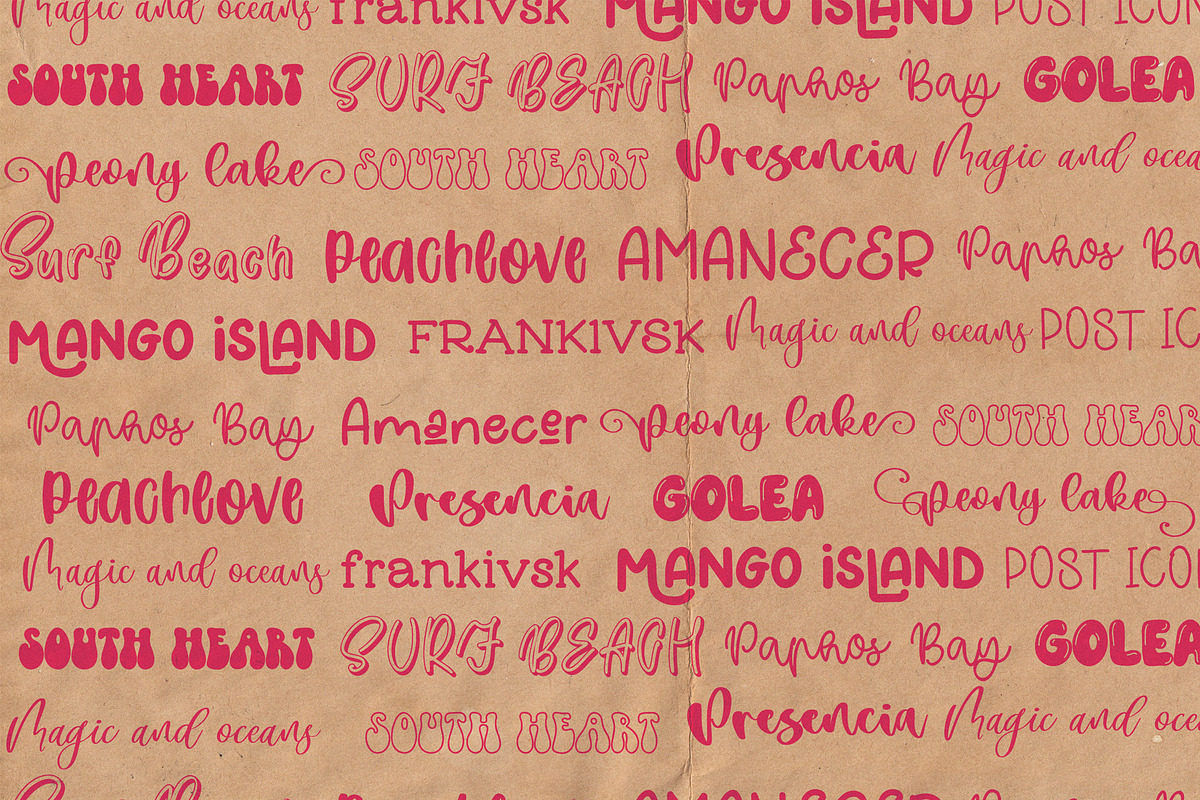 Magic and oceans frankivsk MANGO iSLAND POST ICON
SOUTH HEART SURF BEACH Paphos Bay GOLEA
Peony lake SOUTH HEART Presencia Magic and ocea
Surf Beach Peachlove AMANECER Paphos Ba
MANGO iSLAND FRANKIVSK Magic and oceans POST IC
Paphos Bay Amanecer Peony lake SOUTH HEAR
Peachlove Presencia GOLEA Peony lake
Magic and oceans frankivsk MANGO iSLAND POST ICON
SOUTH HEART SURF BEACH Paphos Bay GOLEA
Magic and oceans SOUTH HEART Presencia Magic and oce